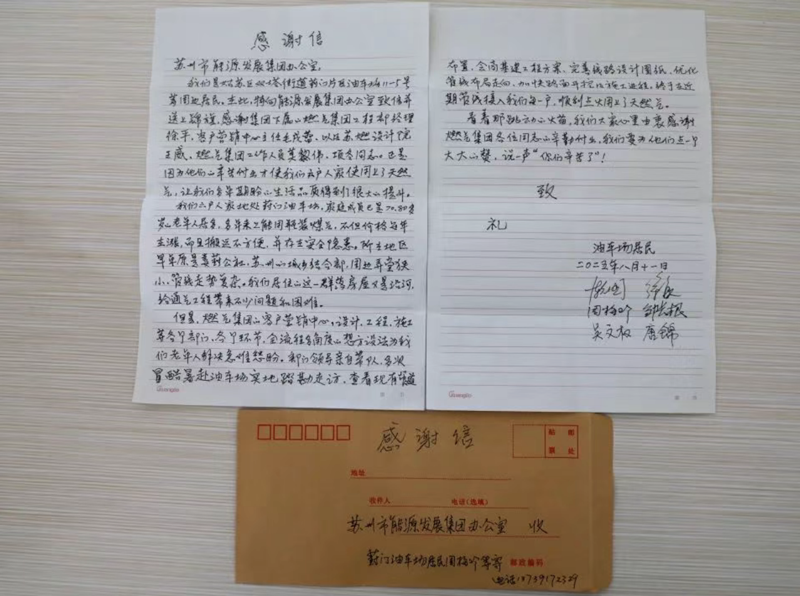 感谢信
苏州市能源发展集团办公室:
我们是姑苏区双塔街道葑门片区油车场11-5号
等周边居民。在此,特向能源发展集团办公室致信并
送上锦旗,感谢集团下属的燃气集团工程部经理
徐平,客户营销中心主任毛成荣,以及苏燃设计院
王威。燃气集团工作人员莫毅伟,项冬同志。正是
因为他们的辛苦付出才使我们六户人家使用上了天然
气,让我们多年期盼的生活品质得到了很大的提升。
我们六户人家地处葑门油车场,家庭成员已是70-80多
岁的老年人居多,多年来只能用瓶装煤气,不但价格每年
上涨,而且搬运不方便,并存在安全隐患。所在地区
早年原是娄葑公社,苏州的城乡结合部,周边弄堂狭
小,管线走势复杂。我们居住的这一群旧房屋又是沿河
给通气工程带来不少问题和困难。
但是,燃气集团的客户营销中心,设计,工程,施工
等各个部门,各个环节,全流程高度的想方设法为我
们老年人解决急难愁盼。部门领导亲自带队,多次
冒酷暑赴油车场实地踏勘走访,查看现有管道
布置,会商基建工程方案,完善线路设计图纸,优化
管线布局走向,加快路面开挖及施工进程,终于在近
期管线接入我们每一户,顺利点火用上了天然气。
看着那跳动的火苗,我们大家心里由衷感谢
燃气集团各位同志的辛勤付出,我们要为他们点一个
大大的赞,说一声“你们辛苦了”!
致
礼
油车场居民
二〇二三年八月十一日
周梅吟
吴文权 唐锦
Guangbo
Guangbo
感谢信
贴 邮
票 处
地址
收件人 电话(区域)
苏州市能源发展集团办公室 收
葑门油车场居民周梅吟等寄 邮政编码